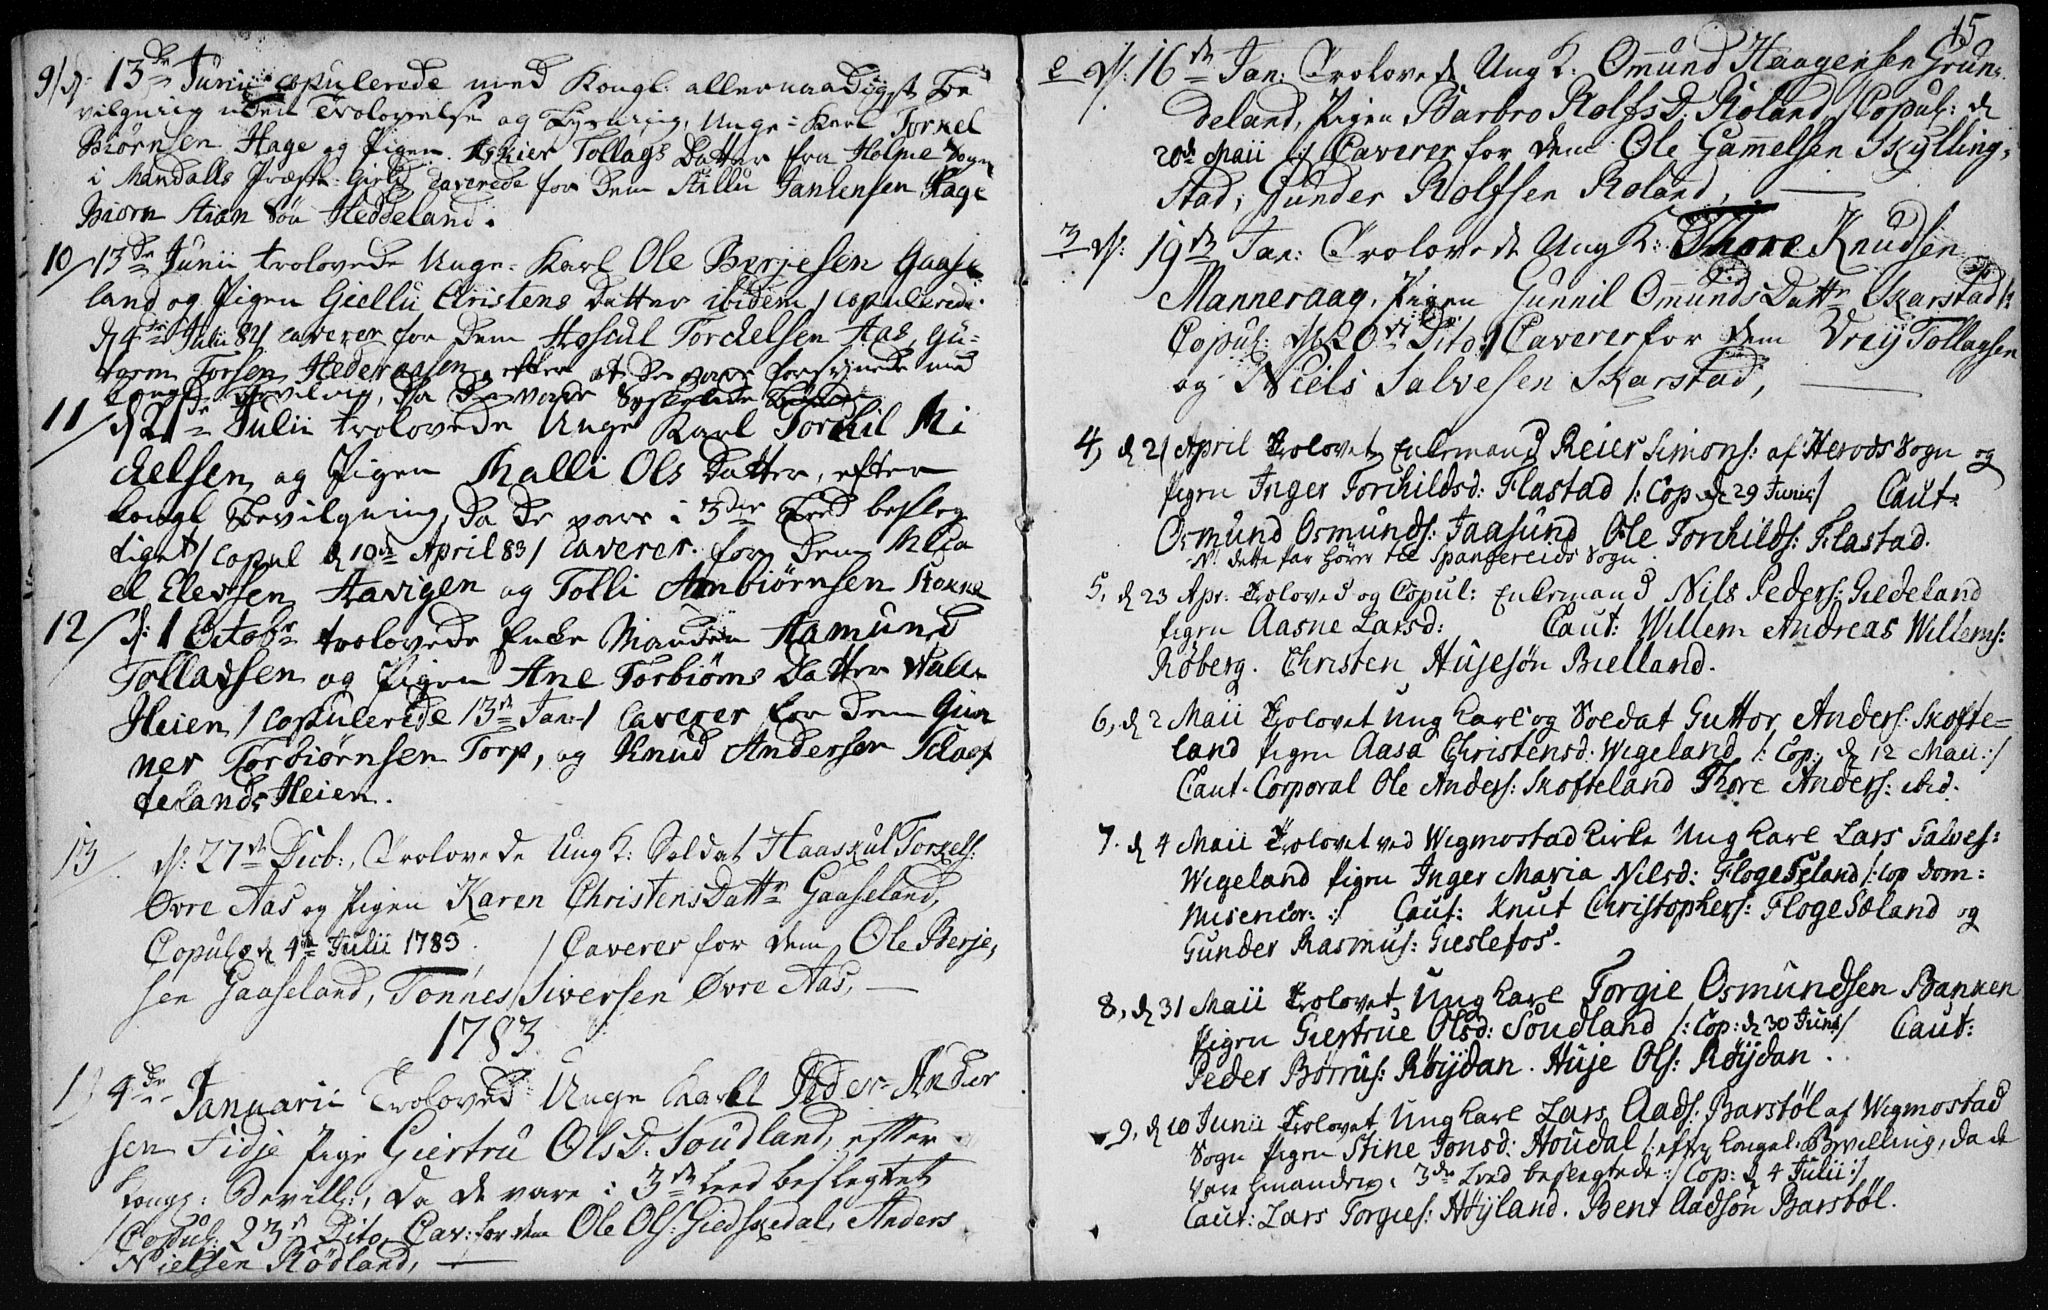 9/ d: 13de Junii copulerede med Kongl: allernaadigst Be
vilgning uden Trolovelse og Lysning, Unge-Karl Torkel
Biørnsen Hage og Pigen Tollags Datter fra Holme Sogn
i Mandalls Præste-Gield, caverede for dem Stillu Hage
Biørn Stian Søn Heddeland.
10/ 13de Junii trolovede Unge-Karl Ole Berjesen Gaase
land og Pigen Giellu Christens Datter ibidem / copulerede
d 4de Julii 84 / caverer for dem Hoscul Torckelsen Aas, Gu-
torm Torsen Hederaasen, efter at de vare forsynede med
Kongl Bevilg, da de vare
11/ d 21de Julii trolovede Unge Karl Torchil Mi
chelsen og Pigen Malli Ols Datter, efter
Kongl Bevilgning, da de vare i 3die Leed besleg
tiget / copul d 10de April 83 / caverer for dem Mica
el Elevsen Stavigen og Tolli Ambiørnsen Rokne
12/ d: 1 Octobr trolovede Enke Manden Aamund
Tollagsen og Pigen Ane Torbiørns Datter Walle
Heien / copulerede 13de Jan: / caverer for dem Gun
ner Torbiørnsen Torp, og Knud Andersen Schof
telands Heien.
13/ d: 27de Decb:, Trolovede Ung K: Soldat Haaskul Torkels:
Øvre Aas og Pigen Karen Christens Dattr Gaaseland,
Copul: d 4de Julii 1783 / Caverer for dem, Ole Berje-
sen Gaaseland, Tønnes Siversen Øvre Aas, —
1783.
1) 4de Januarii Troloved Unge Karl Peder Ander
sen Fidje Pige Giertru Ols D. Soudland, efter
Kongs: Bevill:, da de vare i 3de Leed beslegtet
/ Copul: 23de Dito, Cav: for dem Ole Ols: Giedskedal, Anders
Nielsen Rødland, —
15
2 d: 16de Jan: Trolovede Ung K: Omund Haagensen Grun-
deland, Pigen Barbro Rolfs D. Roland, / Copul: d
20de Maii :/ Caverer for dem Ole Gamelsen Skylling-
stad, Gunder Rolfsen Roland, —
3 d: 19de Jan: Trolovede Ung K: Thore Knudsen
Manneraag, Pigen Gunnil Omunds Dattr Skarstad /:
Copul: d 20de Dito / Caverer for dem Vrey Tollagsen
og Niels Salvesen Skarstad, —
4, d 21 April Trolovet Enkemand Reier Simons: af Herods Sogn og
Pigen Inger Torchildsd: Flastad /: Cop d 29 Junii :/ Caut:
Osmund Osmunds: Jaasund Ole Torchilds: Flastad.
N: dette par hører til Spangereids Sogn
5, d 23 Apr: Troloved og Copul: Enkemand Nils Peders: Giedeland
Pigen Aasne Larsd: Caut: Willem Andreas Willems:
Røberg. Christen Hujesøn Bielland.
6, d 2 Maii Trolovet Ung Karl og Soldat Guttor Anders: Skofte=
land Pigen Aasa Christensd: Wigeland /: Cop: d 12 Maii :/
Caut. Corporal Ole Anders: Skofteland Thore Anders: ibid.
7. d 4 Maii Trolovet ved Wigmostad Kirke Ung Karl Lars Salves:
Wigeland Pigen Inger Maria Nilsd: Flogeseland /: Cop Dom:
Misericor: :/ Caut: Knut Christophers: Flogesæland og
Gunder Rasmus: Gieslefos.
8, d 31 Maii Trolovet Ung Karl Torgie Osmundsen Banken
Pigen Giertrue Olsd: Soudland /: Cop: d 30 Junii :/ Caut:
Peder Børrus: Røijdan. Huje Ols: Røijdan.
9, d 10 Junii Trolovet Ung Karl Lars Aads: Barstøl af Wigmostad
Sogn Pigen Stine Jonsd: Houdal /: efter Kongel: Bevilling, da de
vare hinanden i 3de Leed beslegtede :/ Cop: d 4 Julii :/
Caut: Lars Torgies: Høyland. Bent Aadsøn Barstøl.